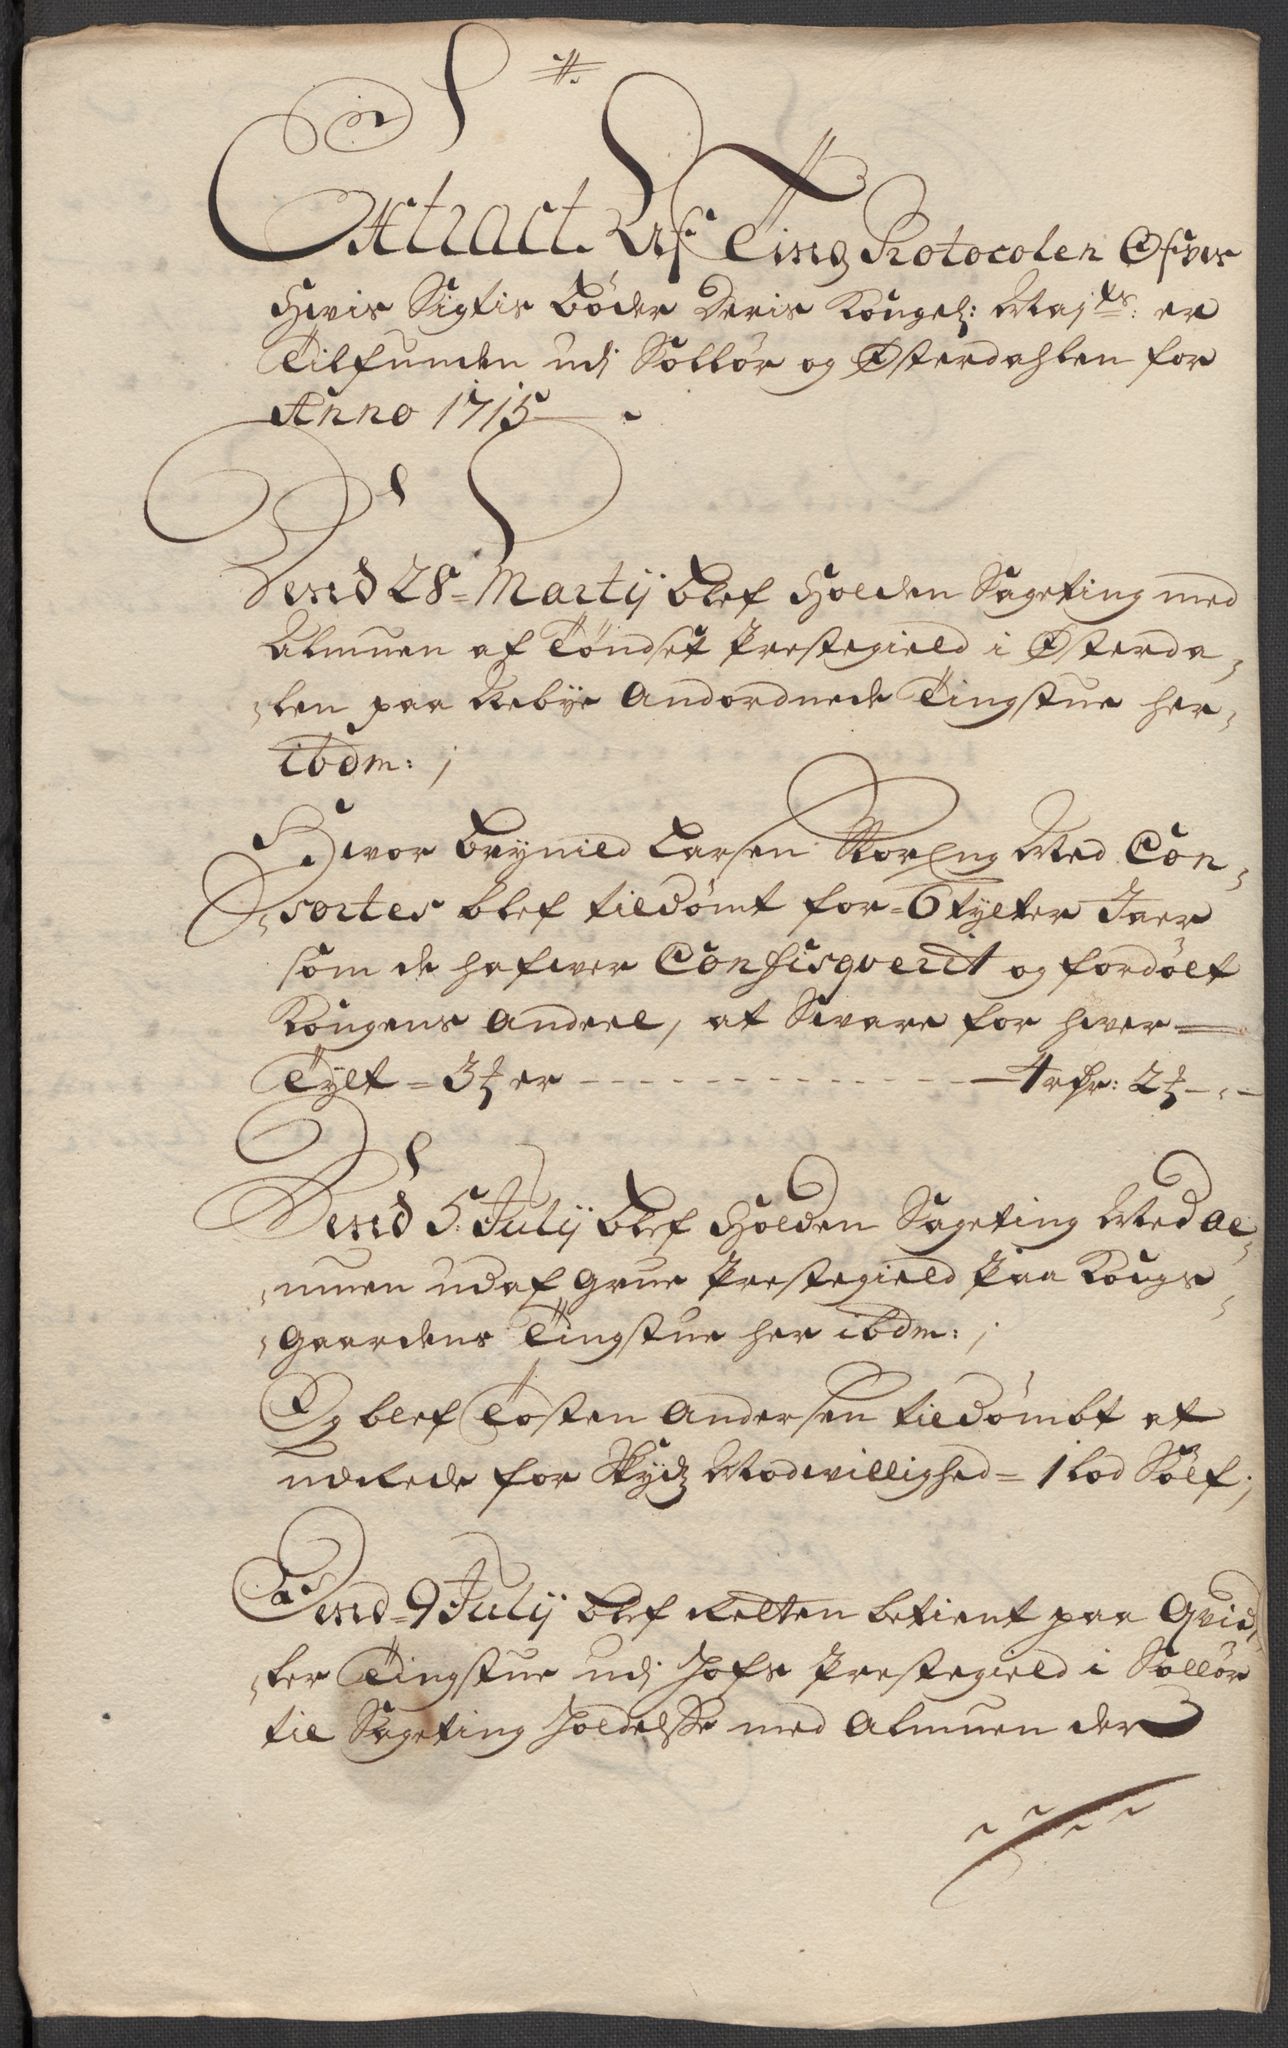 Extract Af Ting Protocolen Ofver
Hvis Sigtis bøder Deris Kongel: Maj:ts: er
Tilfunden udj Solløer og Østerdahlen for
Anno 1715
Dend 28 Martij blef Holden Sageting med
Almuen af Tøndset Prestegield i Østerda-
len paa Aebye Andordnede Tingstue her
ibdm:
Hvor Brynild Larsen Støreng Med Con-
sortes blef tildømt for 6 tylter Traer
som de hafver Confisqverit og fordølt
Kongens Andeel, at Svare for hver
Tylt 3 ꝥ er 4 rdr: 2 ꝥ
Dend 5. Julij blef Holden Sageting Med Al-
muen udaf Grue Prestegield Paa Kongs
Gaardens Tingstue her ibdm:
Og blef Tosten Andersen tildømbt at
udRede for Skydz Modvillighed 1 lod Sølf;
Dend 9 Julij blef Retten betient paa Qvid-
ler Tingstue udj Hofs Prestegield i Solløer
til Sageting Holdelsse med Almuen der